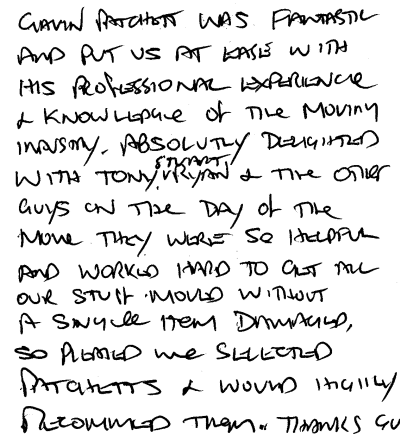 GAVIN PATCHETT WAS FANTASTIC
AND PUT US AT EASE WITH
HIS PROFESSIONAL EXPERIENCE
& KNOWLEDGE OF THE MOVING
INDUSTRY. ABSOLUTLY DELIGHTED
WITH TONY, STUART, RYAN & THE OTHER
GUYS ON THE DAY OF THE
MOVE THEY WERE SO HELPFUL
AND WORKED HARD TO GET ALL
OUR STUFF MOVED WITHOUT
A SINGLE ITEM DAMAGED,
SO PLEASED WE SELECTED
PATCHETTS & WOULD HIGHLY
RECOMMEND THEM. THANKS GU